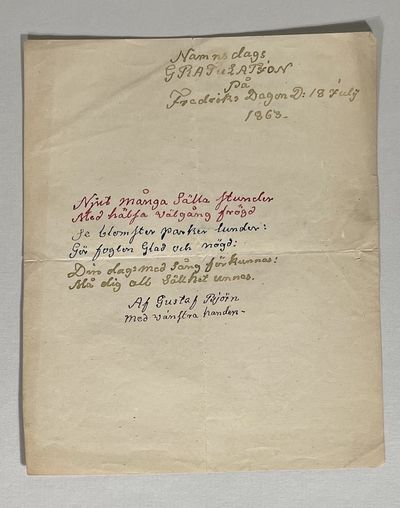 Namnsdags
GRATULATION
På
Fredriks Dagen D: 18 July
1863-
Njut många sälla stunder
Med hälsa välgång frögd
Se blomster parker lunder:
Gör foglen Glad och nögd:
Din dag med sång förkunnes:
Må dig all Sällhet unnes.
Af Gustaf Björn
Med vänstra handen-